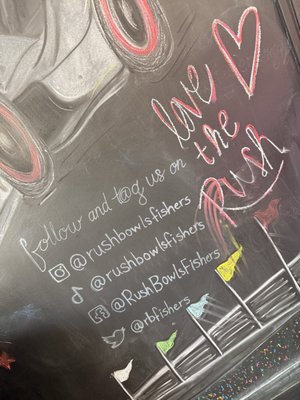 love
the
rush
follow and t@g us on
@rushbowlsfishers
@rushbowlsfishers
@RushBowlsFishers
@rbfishers